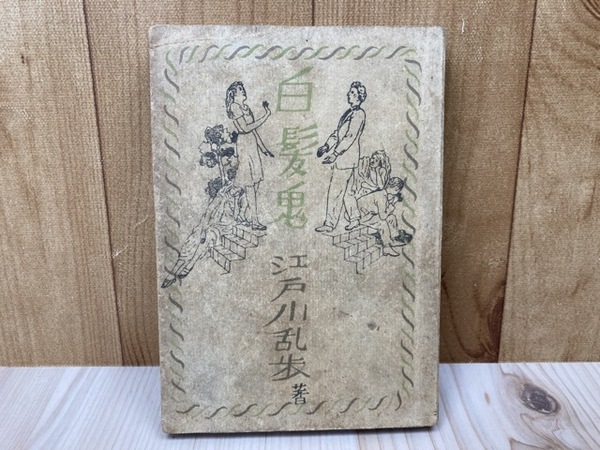 白髪鬼
江戸川乱歩著